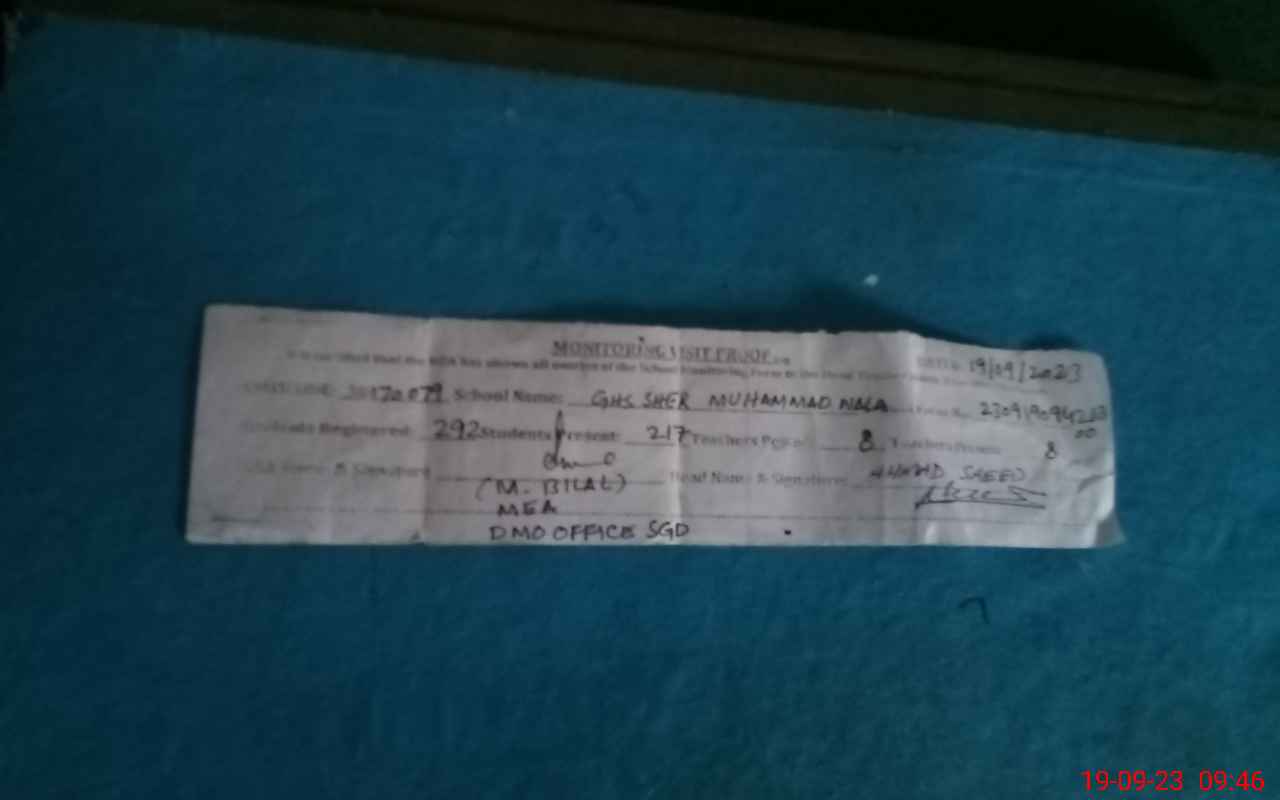 MONITORING VISIT PROOF
DATE: 19/09/2023
It is certified that the MEA has shown all entries of the School Monitoring Form to the Head Teacher
School Name: GHS SHER MUHAMMAD NALA
Students Registered: 292 Students Present: 217 Teachers 8 Teachers Present: 8
MEA Name & Signature Head Name & Signature: SAEED
(M. BILAL)
MEA
DMO OFFICE SGD
19-09-23 09:46